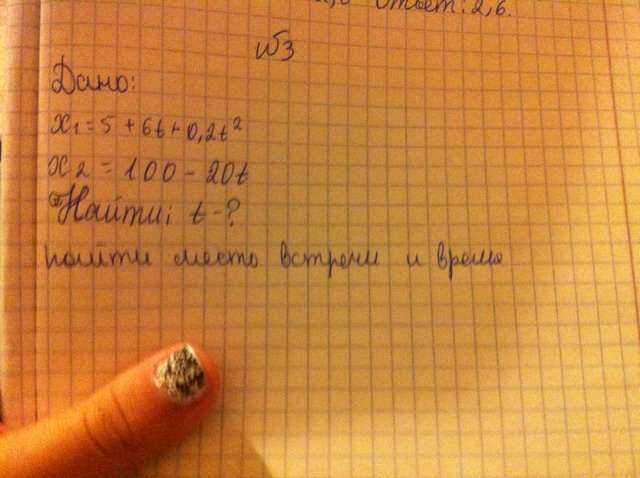 Ответ: 2,6.
№3
Дано:
x₁ = 5 + 6t + 0,2t²
x₂ = 100 - 20t
Найти: t - ?
найти место встречи и время